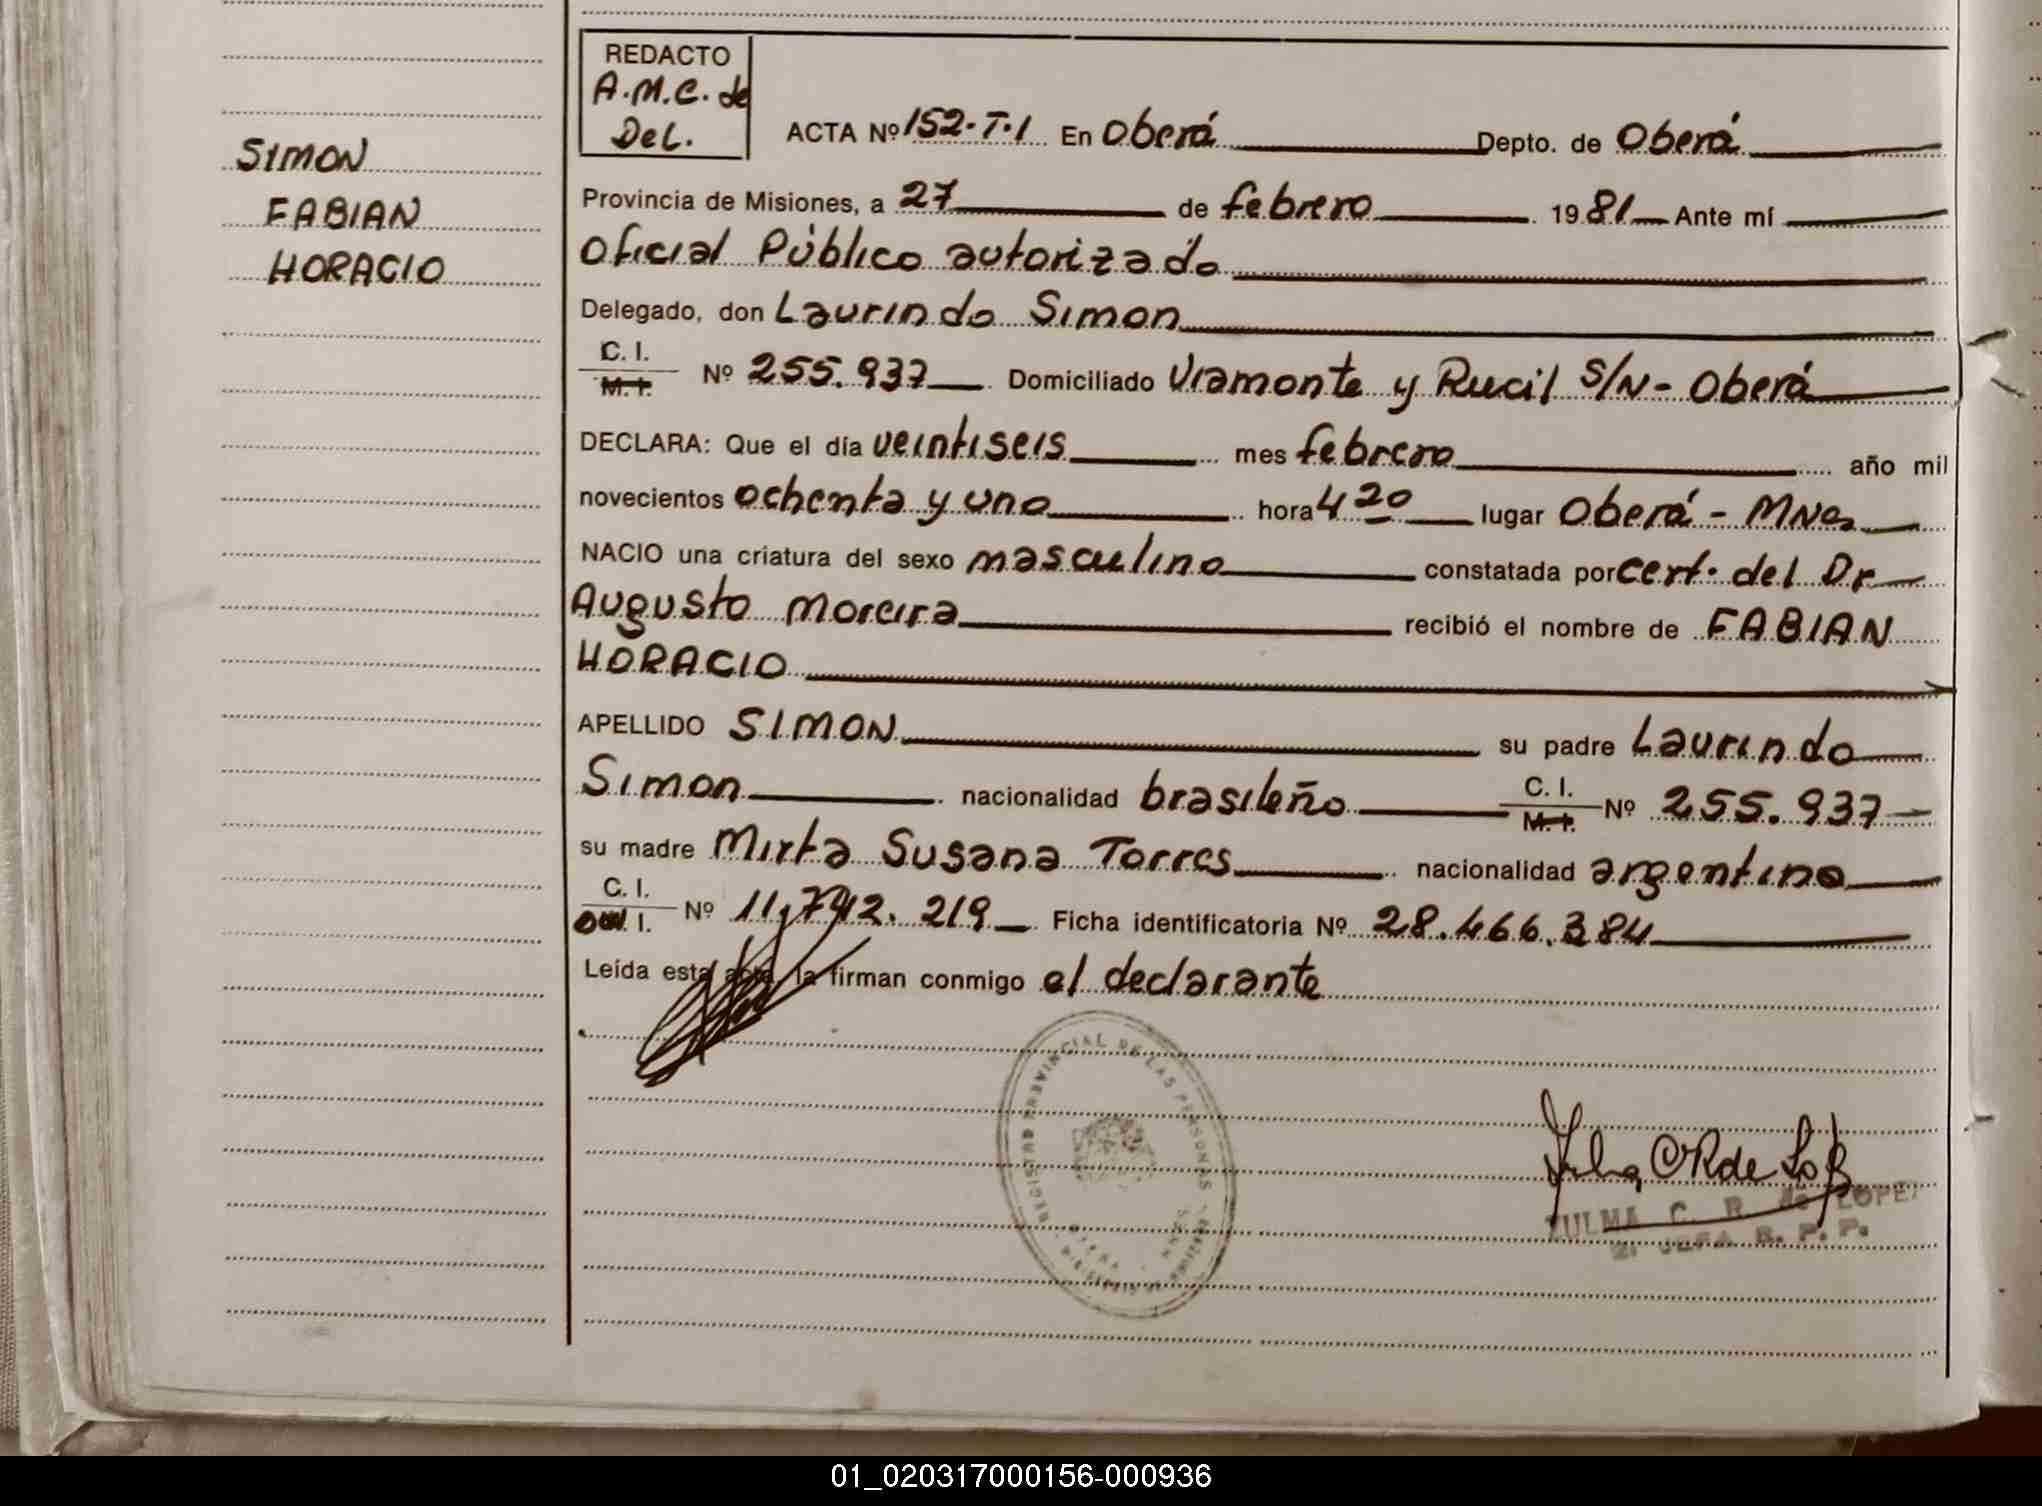 SIMON
FABIAN
HORACIO
REDACTO
A.M.C. de
Del.
ACTA Nº 152-T-1 En Oberá Depto. de Oberá
Provincia de Misiones, a 27 de febrero 1981 Ante mí
Oficial Público autorizado
Delegado, don Laurindo Simon
C. I.
M. I. Nº 255.937 Domiciliado Viamonte y Rucil S/N - Oberá
DECLARA: Que el día veintiseis mes febrero año mil
novecientos ochenta y uno hora 4 20 lugar Oberá - Mnes
NACIO una criatura del sexo masculino constatada por cert. del Dr
Augusto Moreira recibió el nombre de FABIAN
HORACIO
APELLIDO SIMON su padre Laurindo
Simon nacionalidad brasileño C. I. M. I. Nº 255.937
su madre Mirta Susana Torres nacionalidad argentina
C. I.
I. Nº 11.792.219 Ficha identificatoria Nº 28.466.384
Leída esta acta la firman conmigo el declarante
REGISTRO PROVINCIAL DE LAS PERSONAS
ZULMA C. R. de LOPEZ
JEFA R. P. P.
01_020317000156-000936